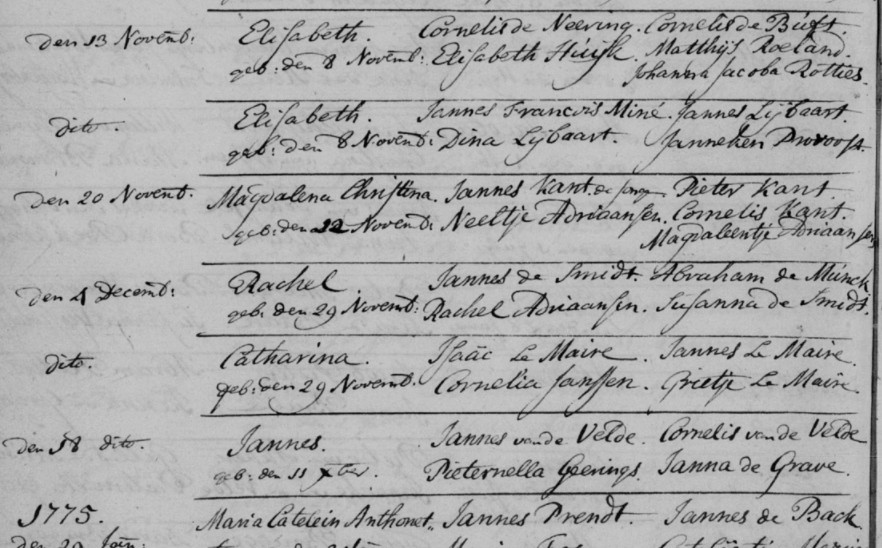 den 13 Novemb: Elisabeth. Cornelis de Neering. Cornelis de Buft.
geb: den 8 Novemb: Elisabeth Huijk. Matthijs Roeland.
Johanna Jacoba Rotties.
dito Elisabeth. Jannes Francois Miné. Jannes Lijbaart.
geb: den 8 Novemb: Dina Lijbaart. Janneken Provoost.
den 20 Novemb. Magdalena Christina. Jannes Kant de Jonge Pieter Kant
geb: den 12 Novemb: Neeltje Adriaansen. Cornelis Kant.
Magdaleentje Adriaansen
den 4 Decemb: Rachel. Jannes de Smidt. Abraham de Munck
geb: den 29 Novemb: Rachel Adriaansen. Susanna de Smidt.
dito. Catharina. Isaäc Le Maire. Jannes Le Maire.
geb: den 29 Novemb. Cornelia Janssen. Grietje Le Maire
den 18 dito. Jannes. Jannes van de Velde. Cornelis van de Velde
geb: den 11 Xber. Pieternella Geerings. Janna de Grave.
1775. Maria Catelein Anthonet„ Jannes Prendt. Jannes de Back
den 29 Jan: